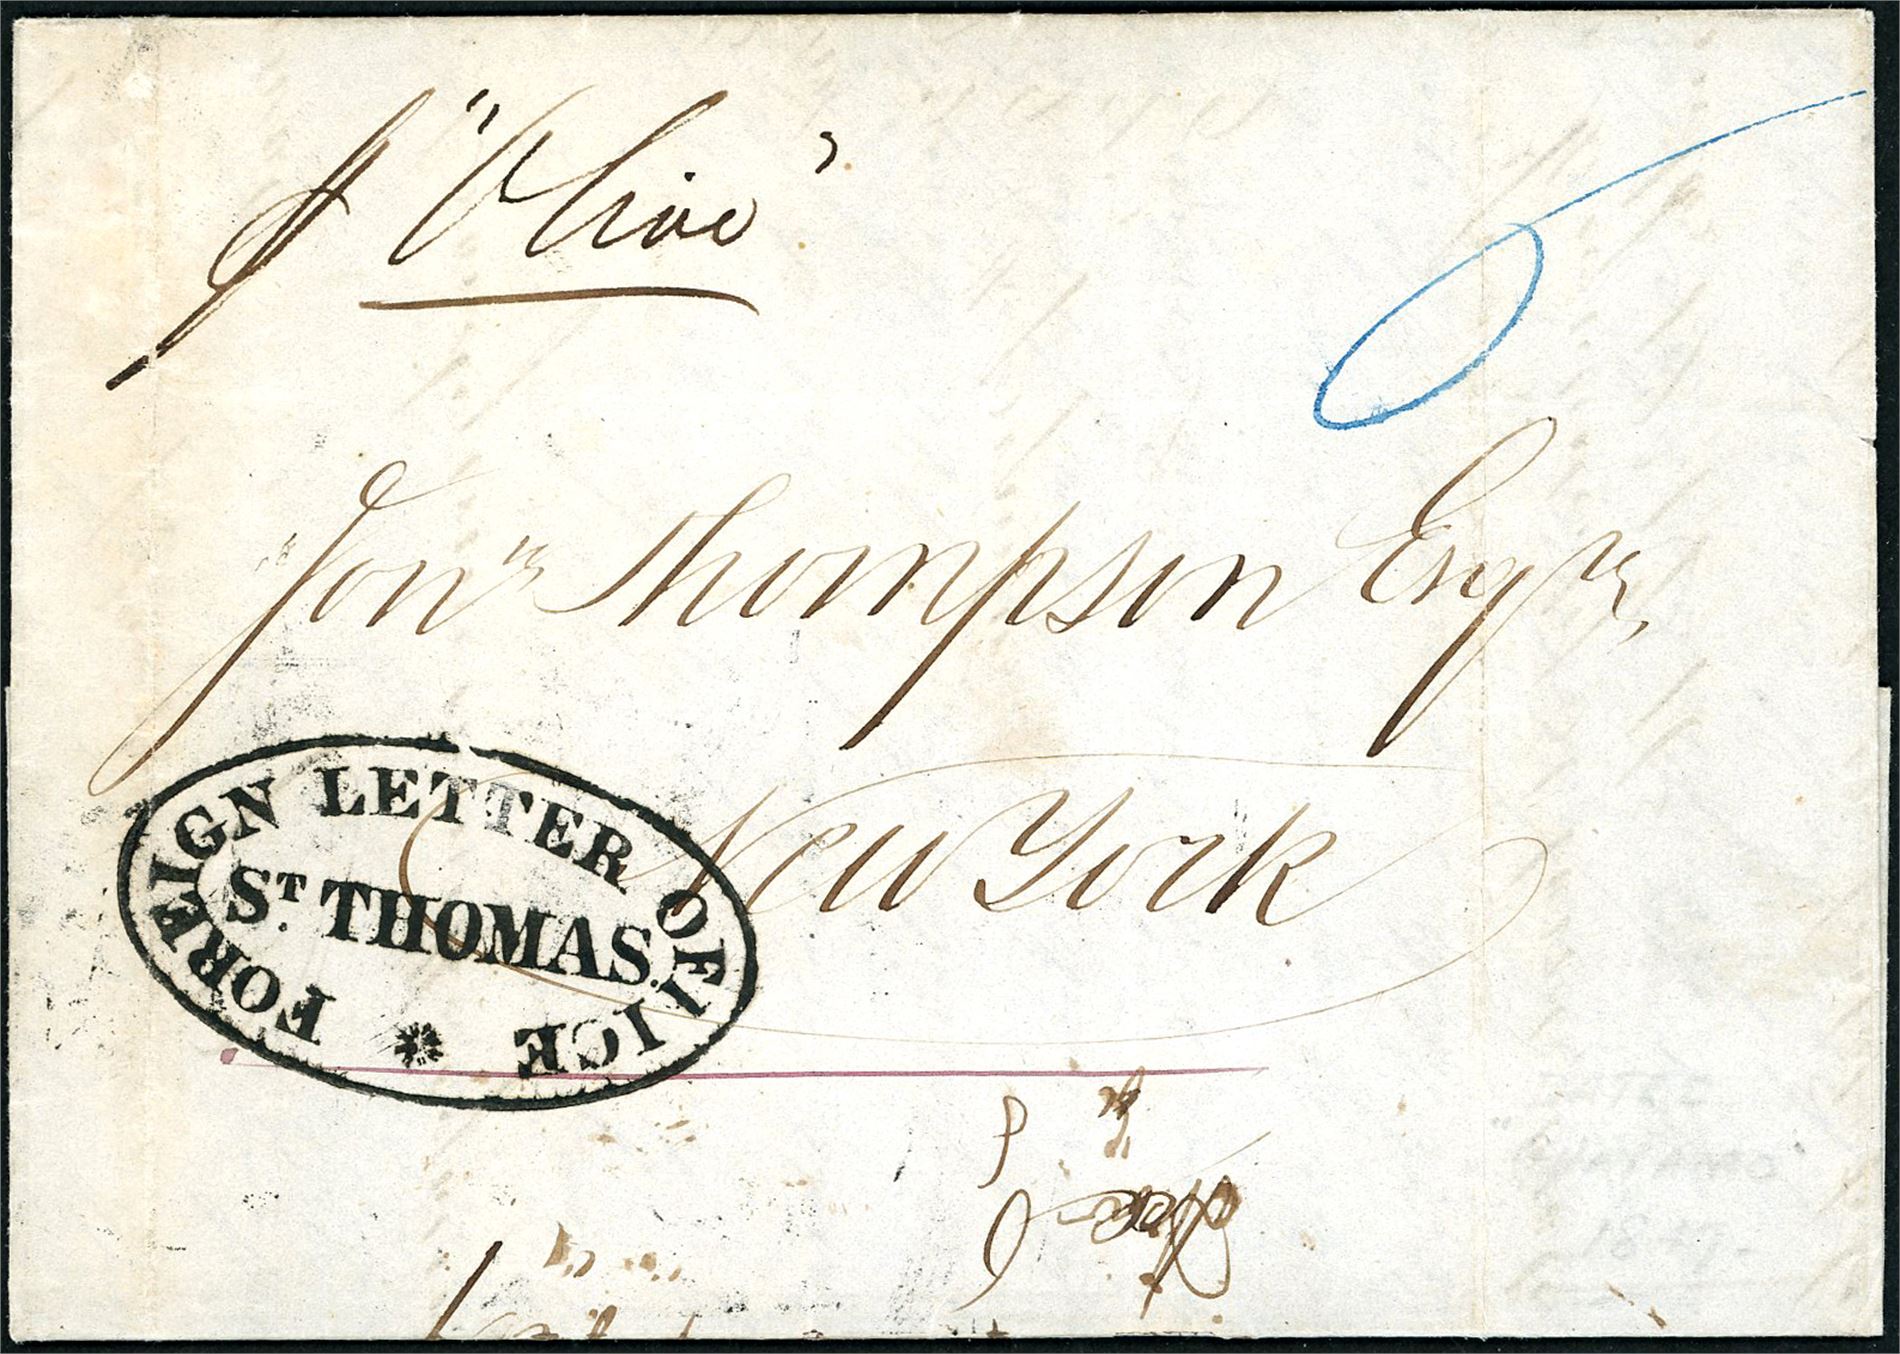 p "Olive"
6
Jonn Thompson Esqr,
New York
FOREIGN LETTER OFFICE
ST. THOMAS.